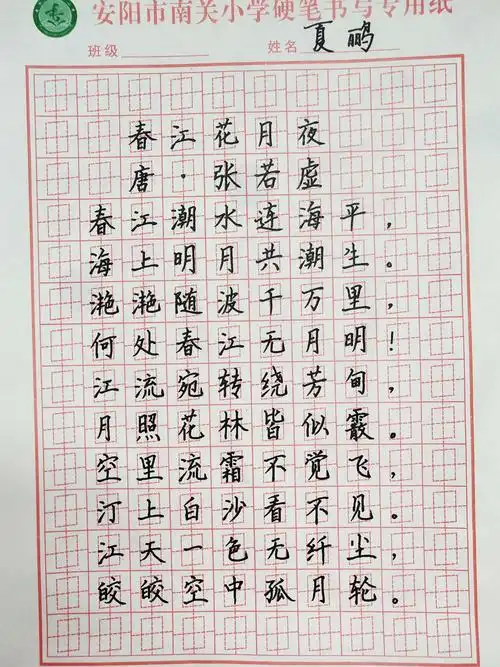 安阳市南关小学硬笔书写专用纸
班级 姓名 夏鹏
春江花月夜
唐·张若虚
春江潮水连海平，
海上明月共潮生。
滟滟随波千万里，
何处春江无月明！
江流宛转绕芳甸，
月照花林皆似霰。
空里流霜不觉飞，
汀上白沙看不见。
江天一色无纤尘，
皎皎空中孤月轮。